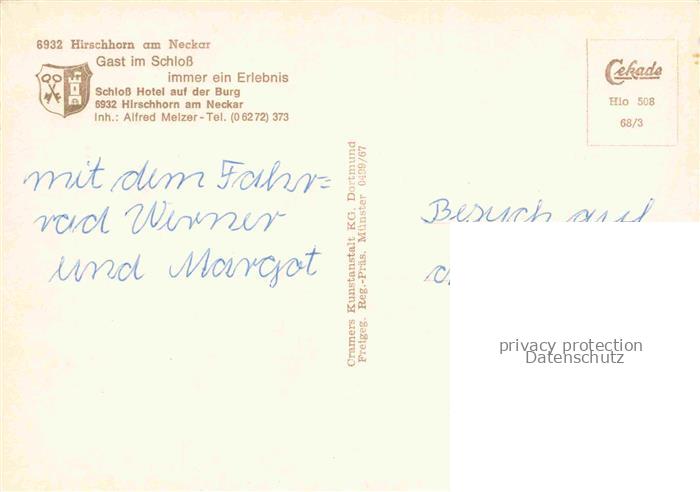 6932 Hirschhorn am Neckar
Gast im Schloß
immer ein Erlebnis
Schloß Hotel auf der Burg
6932 Hirschhorn am Neckar
Inh.: Alfred Melzer - Tel. (0 62 72) 373
Cekade
Hio 508
68/3
mit dem Fahr=
rad Werner
und Margot
Cramers Kunstanstalt KG. Dortmund
Freigeg. Reg.-Präs. Münster 0499/67
Besuch auf
privacy protection
Datenschutz